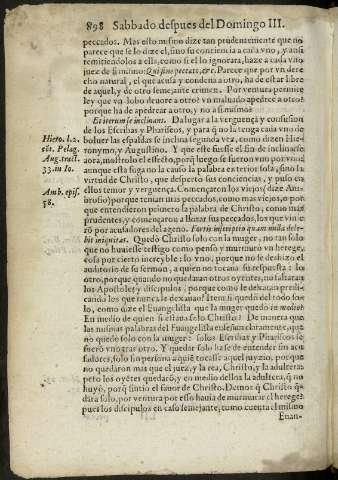 898 Sabbado despues del Domingo III.
peccados. Mas esto mismo dize tan prudentemente que no
parece que se lo dize el, sino su conciencia a cada vno, y ansi
remitiendolos a ella, como si el lo ignorara, haze a cada vno
juez de si mismo: Qui sine peccato, &c. Parece que por vn dere
cho natural, el que acusa y condena a otro, ha de estar libre
de aquel, y de otro semejante crimen. Por ventura permite
ley que vn lobo deuore a otro? vn maluado apedree a otro?
porque ha de apedrear a otro, y no a si mismo?
Et iterum se inclinans. Da lugar a la verguença y confusion
de los Escribas y Phariseos, y para q̃ no la tenga cada vno de
Hiero. l. 2. boluer las espaldas se inclina segunda vez, como dizen Hie-
cōt. Pelag. ronymo, y Augustino. Y que este fuesse el fin de inclinarse
Aug. tract. aora, mostrolo el effecto, porq̃ luego se fueron vno por vno,
33. in Io. aunque esta fuga no la causò la palabra exterior sola, sino la
virtud de Christo, que despertò sus conciencias, y puso en
Amb. epis. ellos temor y verguença. Començaron los viejos (dize Am-
58. brosio) porque tenian mas peccados, como mas viejos, o por
que entendieron primero la palabra de Christo, como mas
prudentes, y començaron a llorar sus peccados, los que vinie
rō por acusadores del ageno.
que no huuiesse testigo como pensò y murmurò vn herege,
cosa por cierto increyble: lo vno, porque no se deshizo el
auditorio de su sermon, a quien no tocaua su respuesta: lo
otro, porque quando no quedaran otros oyentes, no faltaran
los Apostoles y discipulos, porque como le dexaran predi-
cando los que nunca le dexauan? Item si quedò del todo so-
lo, como dize el Euangelista que la muger quedò in medio?
En medio de quien si estaua solo Christo? De manera que
las mismas palabras del Euangelista enseñan claramente, que
no quedo solo con la muger: solos Escribas y Phariseos se
fuerō vno tras otro. Y quedar solo ha se de entender sin acu
sadores, solo sin persona a quiē tocasse aquel juyzio, porque
no quedaron mas que el juez, y la rea, Christo, y la adultera:
pero los oyētes quedarō, y en medio dellos la adultera, q̃ no
huyò, porq̃ sintio el fauor de Christo. Demos q̃ Christo q̃
dara solo, por ventura por esso hauia de murmurar el herege?
pues los discipulos en caso semejante, como cuenta el mismo
Euan-